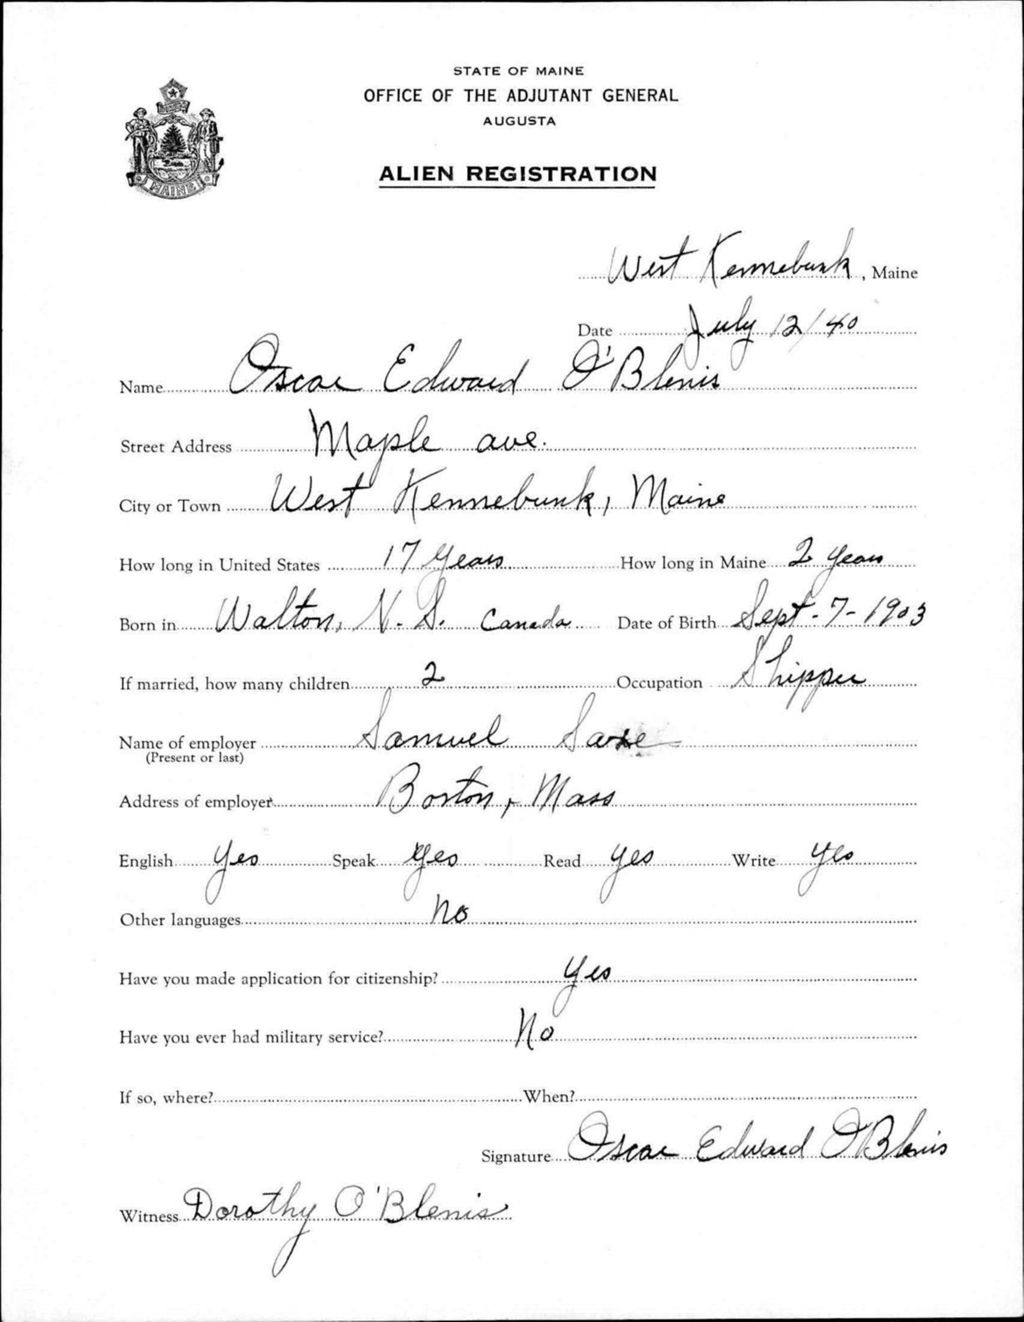 STATE OF MAINE
OFFICE OF THE ADJUTANT GENERAL
AUGUSTA
ALIEN REGISTRATION
MAINE
West Kennebunk, Maine
Date July 12/40
Name Oscar Edward O'Blenis
Street Address Maple ave.
City or Town West Kennebunk, Maine
How long in United States 17 years How long in Maine 2 years
Born in Walton, N.S. Canada Date of Birth Sept-7-1903
If married, how many children 2 Occupation Shipper
Name of employer Samuel Saxe
(Present or last)
Address of employer Boston, Mass
English Yes Speak Yes Read Yes Write Yes
Other languages No
Have you made application for citizenship? Yes
Have you ever had military service? No
If so, where? When?
Signature Oscar Edward O'Blenis
Witness Dorothy O'Blenis